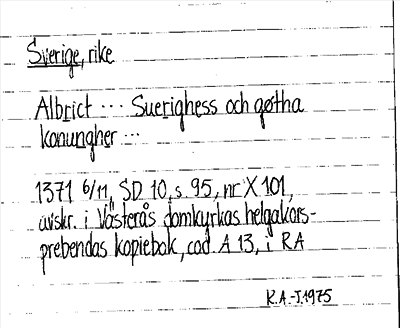 Sverige, rike
Albrict ... Suerighess och gøtha
konungher ...
1371 6/11, SD 10, s. 95, nr X 101,
avskr. i Västerås domkyrkas helgakors-
prebendas kopiebok, cod. A 13, i RA
K.A.-J. 1975